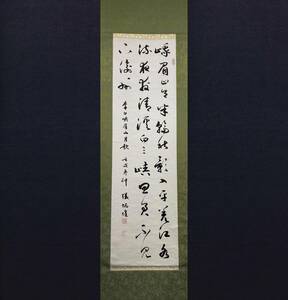 峨眉山月半輪秋影入平羌江水
流夜發清溪向三峽思君不見
下渝州 李白峨眉山月歌